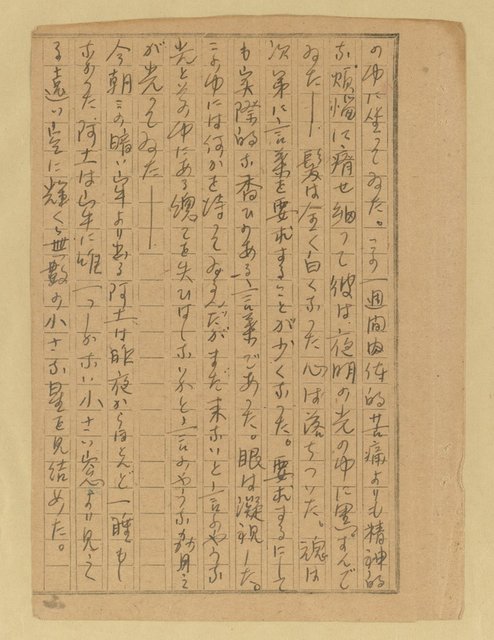 の中に坐つてゐた。この一週間肉体的苦痛よりも精神的
な煩悩に瘠せ細つて彼は夜明の光の中に黒ずんで
ゐた――髪は全く白くなつた心は落ちついた。魂は
次第に言葉を要求することが少くなつた。要求するにして
も実際的な香ひのある、言葉であつた。眼は凝視した。
この中には何かを待つてゐるんだがまだ来ないと言のやうな
光とその中にある魂てを失ひはしないかと言のやうな
が光つてゐた――
今朝この暗い牢より出る阿土は昨夜からほとんど一睡もし
なかつた阿土は牢に唯一つしかない小さい窓より見え
る遠い空に輝く無数の小さな星を見詰めた。